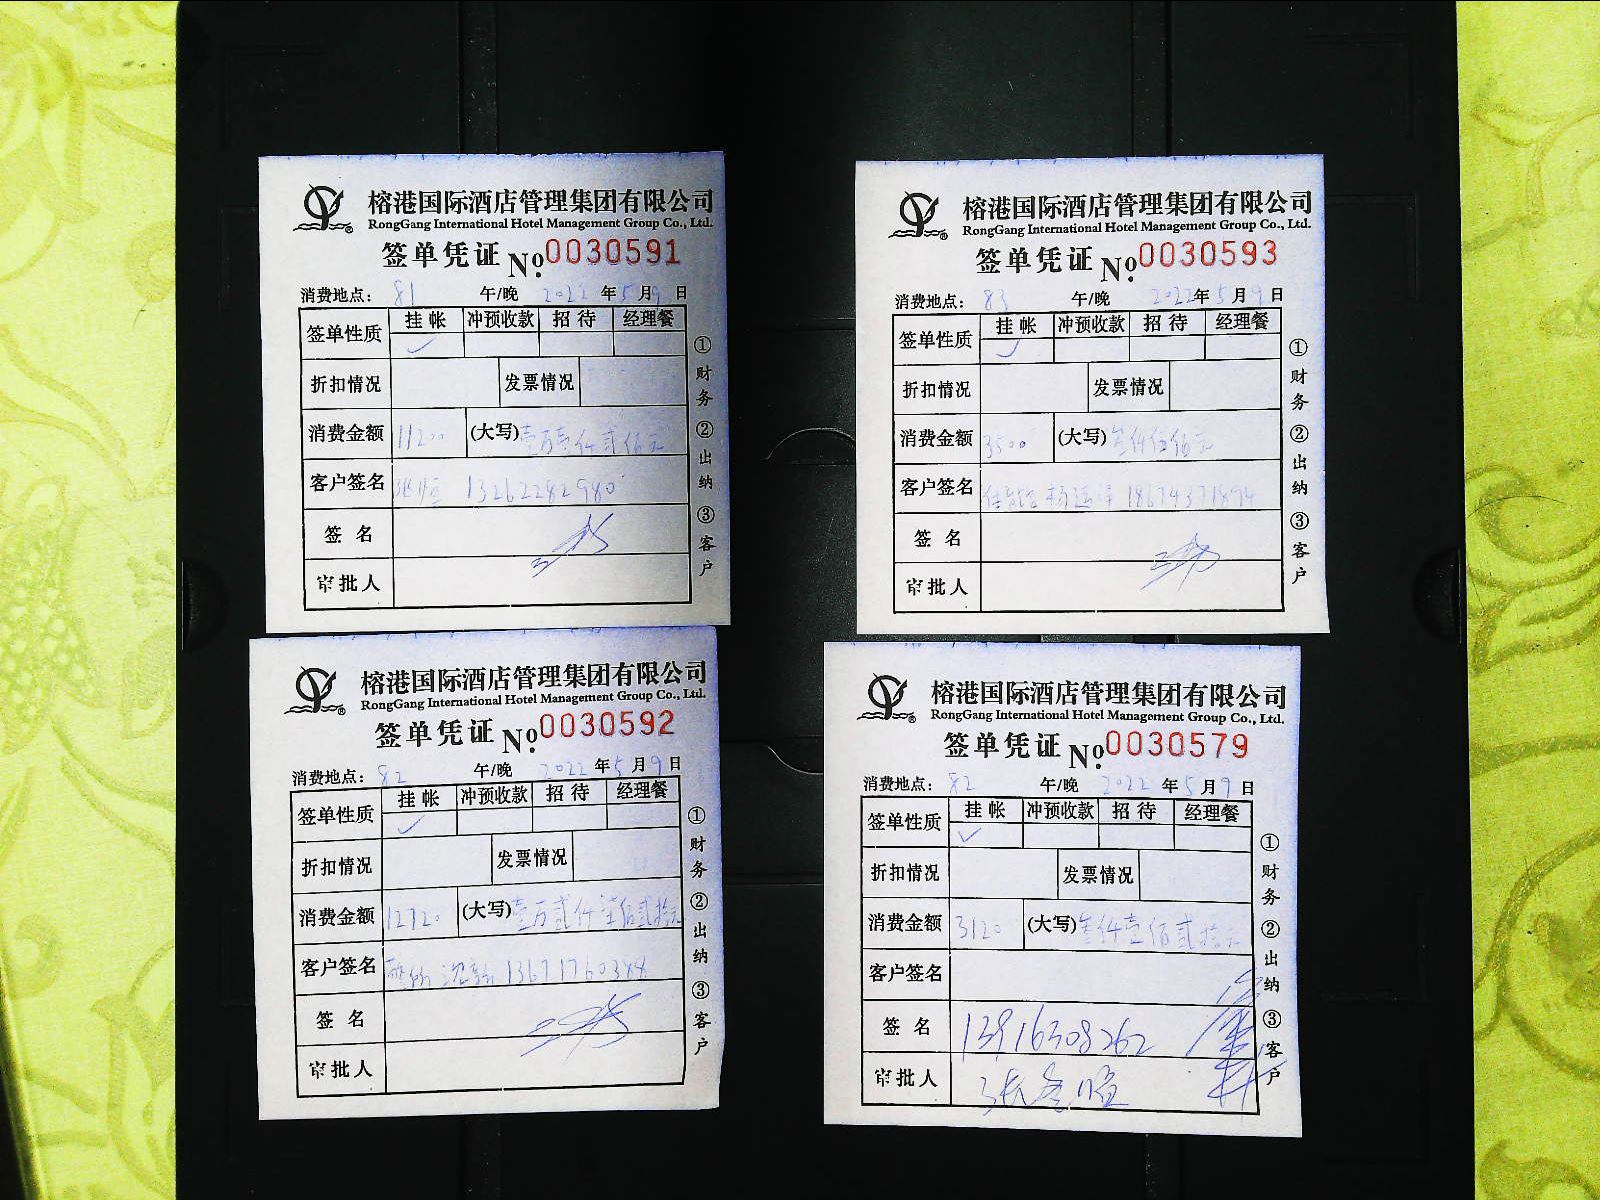 榕港国际酒店管理集团有限公司
RongGang International Hotel Management Group Co., Ltd.
签单凭证 №.0030591
消费地点: 81 午/晚 2022 年 5 月 9 日
签单性质 挂帐 冲预收款 招待 经理餐
✓
折扣情况 发票情况
消费金额 11200 (大写) 壹万壹仟贰佰元
客户签名 13262282980
签名
审批人
①财务 ②出纳 ③客户
榕港国际酒店管理集团有限公司
RongGang International Hotel Management Group Co., Ltd.
签单凭证 №.0030593
消费地点: 83 午/晚 2022 年 5 月 9 日
签单性质 挂帐 冲预收款 招待 经理餐
✓
折扣情况 发票情况
消费金额 3500 (大写) 叁仟伍佰元
客户签名 18674371894
签名
审批人
①财务 ②出纳 ③客户
榕港国际酒店管理集团有限公司
RongGang International Hotel Management Group Co., Ltd.
签单凭证 №.0030592
消费地点: 82 午/晚 2022 年 5 月 9 日
签单性质 挂帐 冲预收款 招待 经理餐
✓
折扣情况 发票情况
消费金额 12720 (大写) 壹万贰仟柒佰贰拾元
客户签名 13671760388
签名
审批人
①财务 ②出纳 ③客户
榕港国际酒店管理集团有限公司
RongGang International Hotel Management Group Co., Ltd.
签单凭证 №.0030579
消费地点: 82 午/晚 2022 年 5 月 9 日
签单性质 挂帐 冲预收款 招待 经理餐
✓
折扣情况 发票情况
消费金额 3120 (大写) 叁仟壹佰贰拾元
客户签名
签名 13916308262
审批人
①财务 ②出纳 ③客户